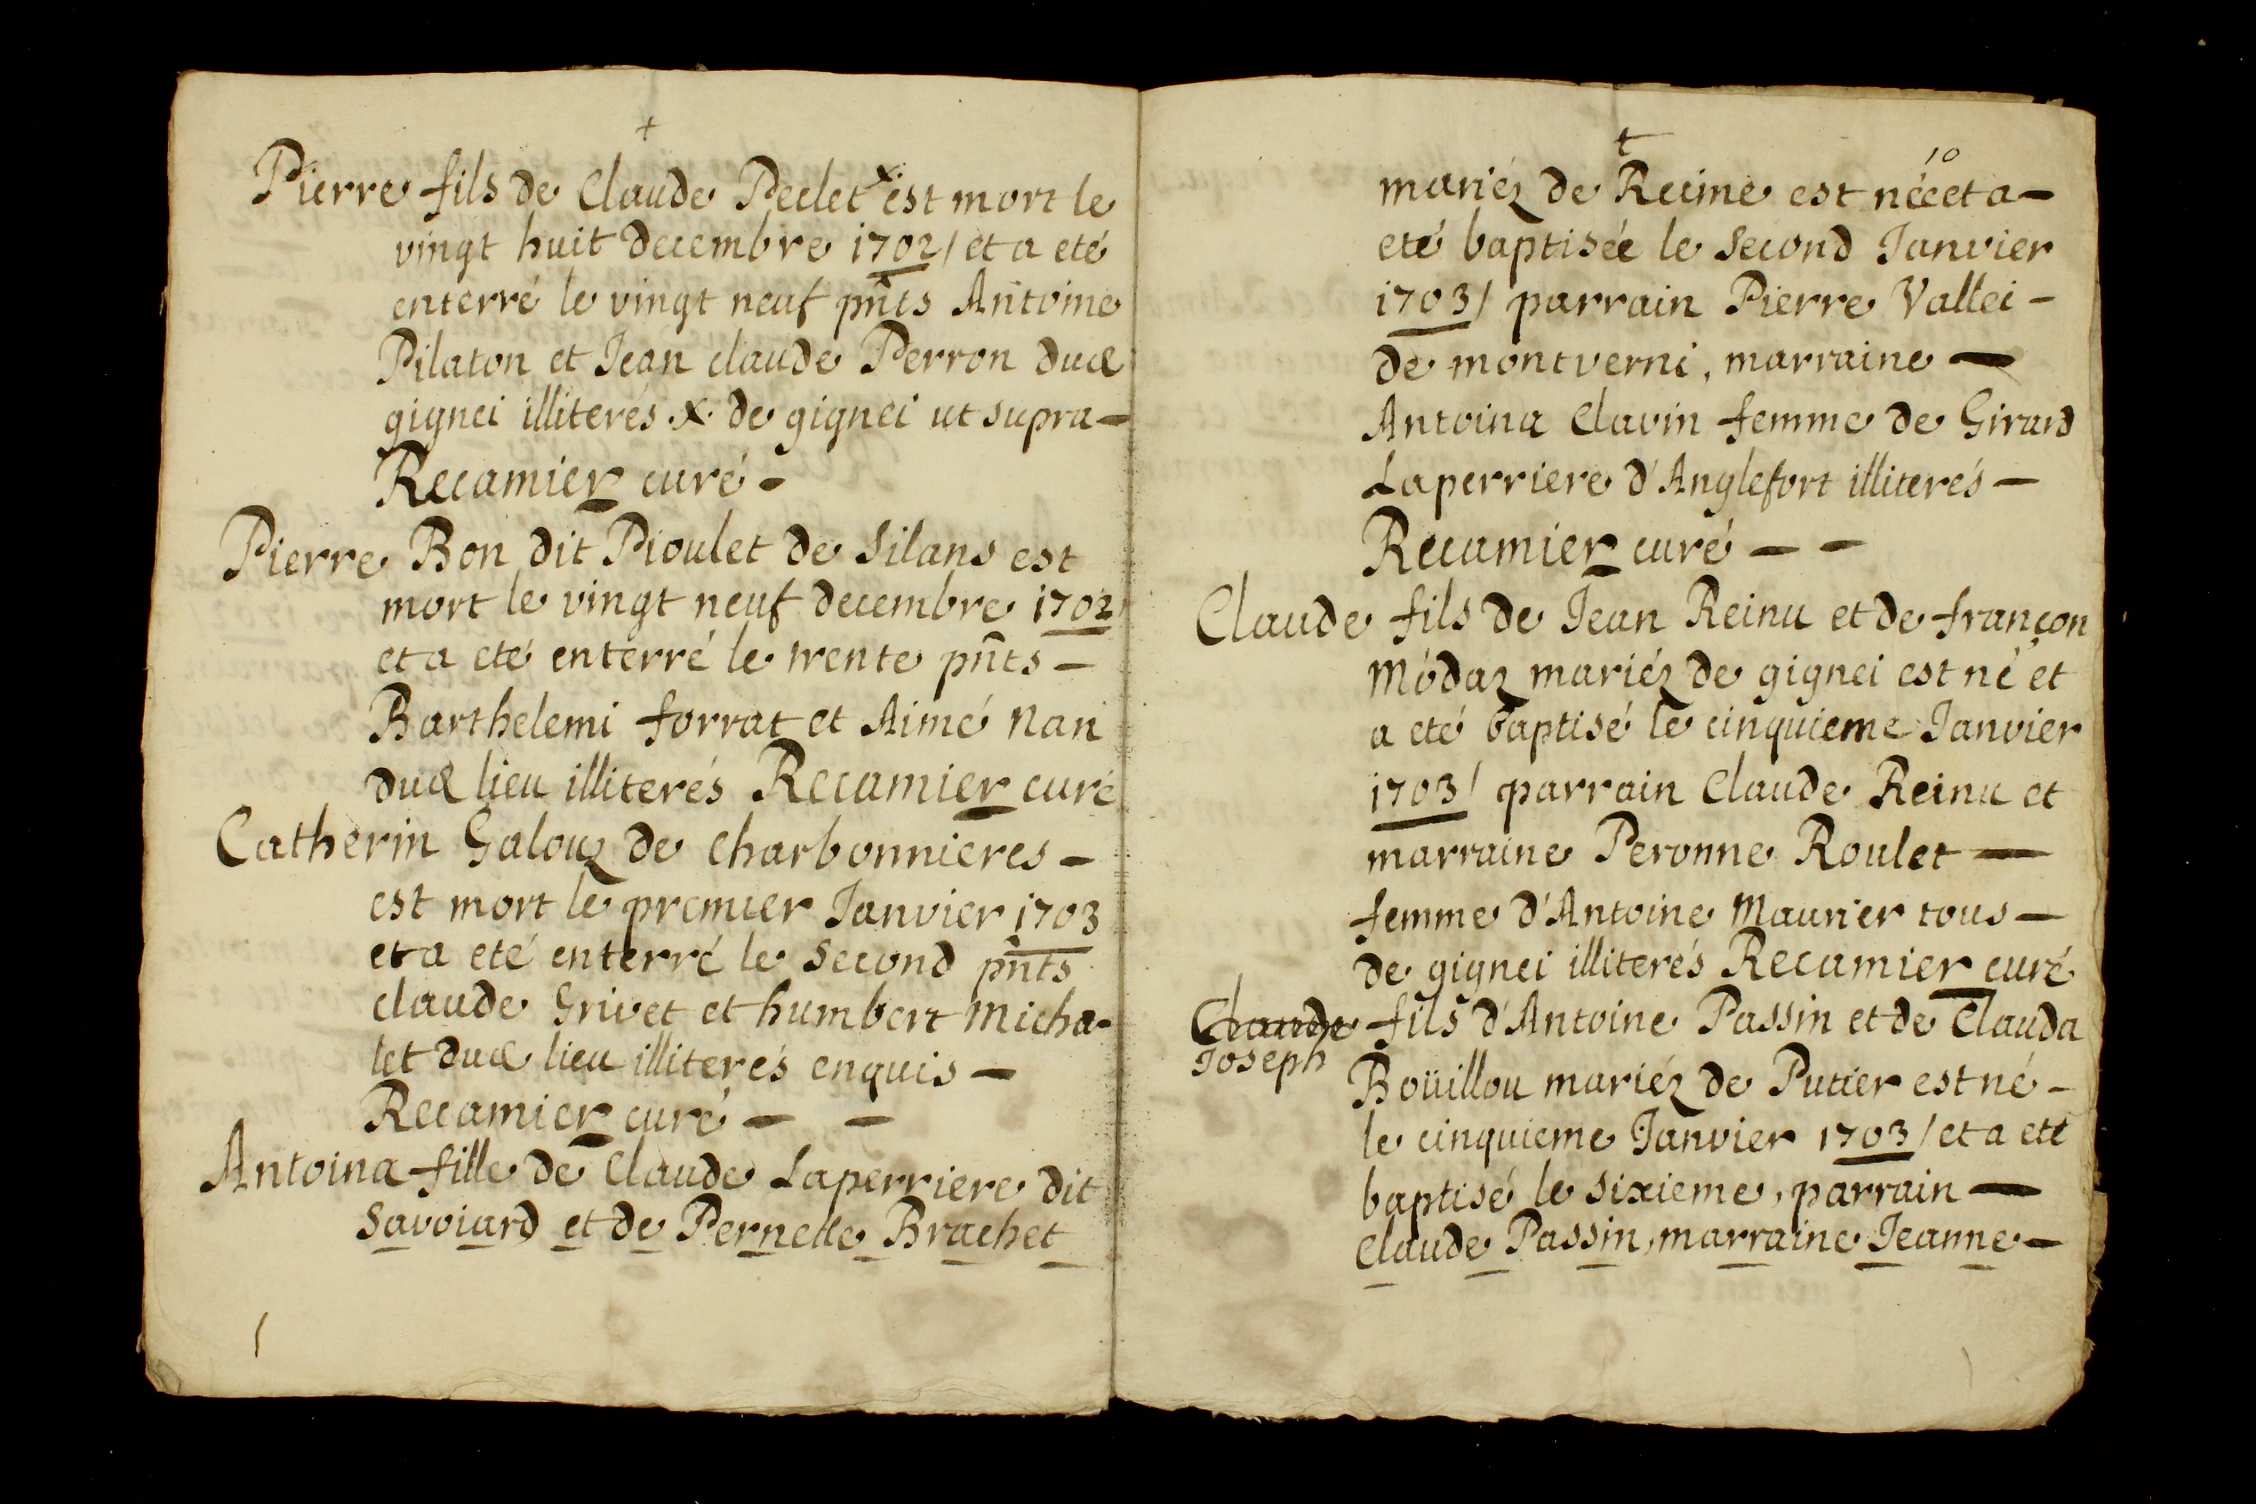 +
Pierre fils de Claude Peclet x est mort le
vingt huit decembre 1702/ et a eté
enterré le vingt neuf pñts Antoine
Pilaton et Jean claude Perron dud
gignei illiterés x de gignei ut supra –
Recamier curé –
Pierre Bon dit Pioulet de Silans est
mort le vingt neuf decembre 1702
et a eté enterré le trente pñts –
Barthelemi forrat et Aimé nan
dud lieu illiterés Recamier curé
Catherin Galouz de Charbonnieres –
est mort le premier Janvier 1703
et a eté enterré le Second pñts
claude Grivet et humbert Micha-
let dud lieu illiterés enquis –
Recamier curé – –
Antoina fille de Claude Laperriere dit
Savoiard et de Pernette Brachet
t
10
mariéz de Reeime est néé et a –
eté baptisée le Second Janvier
1703/ parrain Pierre Vallei –
de montverni, marraine –
Antoina Clavin femme de Girard
Laperriere d'Anglefort illiterés –
Recamier curé – –
Claude fils de Jean Reinu et de françon
Módaz mariéz de gignei est né et
a eté baptisé le cinquieme Janvier
1703/ parrain Claude Reinu et
marraine Peronne Roulet –
femme d'Antoine Maurier tous –
de gignei illiterés Recamier curé
Claude fils d'Antoine Passin et de Clauda
Joseph
Boüillou mariéz de Putier est né –
le cinquieme Janvier 1703/ et a eté
baptisé le sixieme, parrain –
Claude Passin, marraine Jeanne –